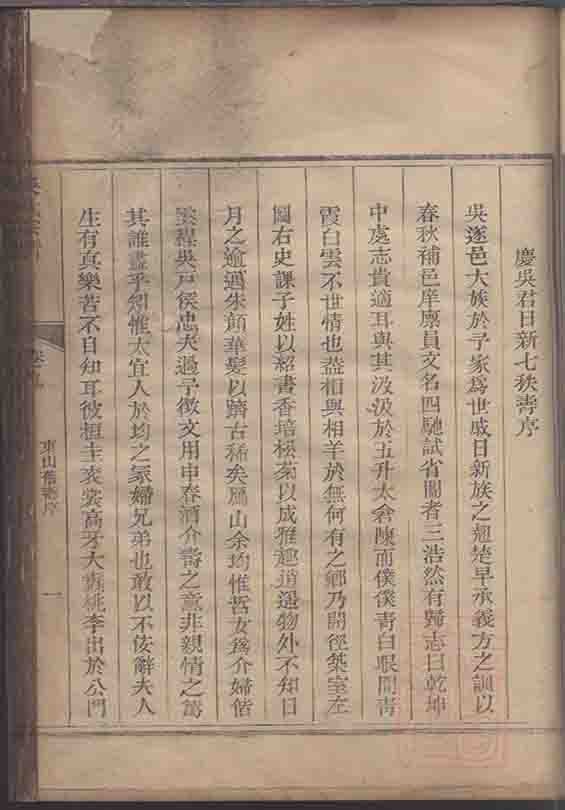 慶吳君日新七秩壽序
吳遂邑大族於予家爲世戚日新族之翹楚早承義方之訓以
春秋補邑庠廩員文名四馳試省闈者三浩然有歸志曰乾坤
中處志貴適耳與其汲汲於五升太倉陳而僕僕靑白眼間靑
霞白雲不世情也葢相與相羊於無何有之鄉乃開徑築室左
圖右史課子姓以紹書香培松菊以成雅趣道遥物外不知日
月之逾邁朱顏華髮以躋古稀矣鳳山余均惟哲女爲介婦偕
吳戸侯忠夫過予徵文用申春酒介壽之意非親情之篤
其誰盡乎矧惟太宜人於均之冢婦兄弟也敢以不佞辭夫人
生有真樂苦不自知耳彼桓圭袞裳高牙大纛桃李出於公門
卷九
東山舊壽序
一